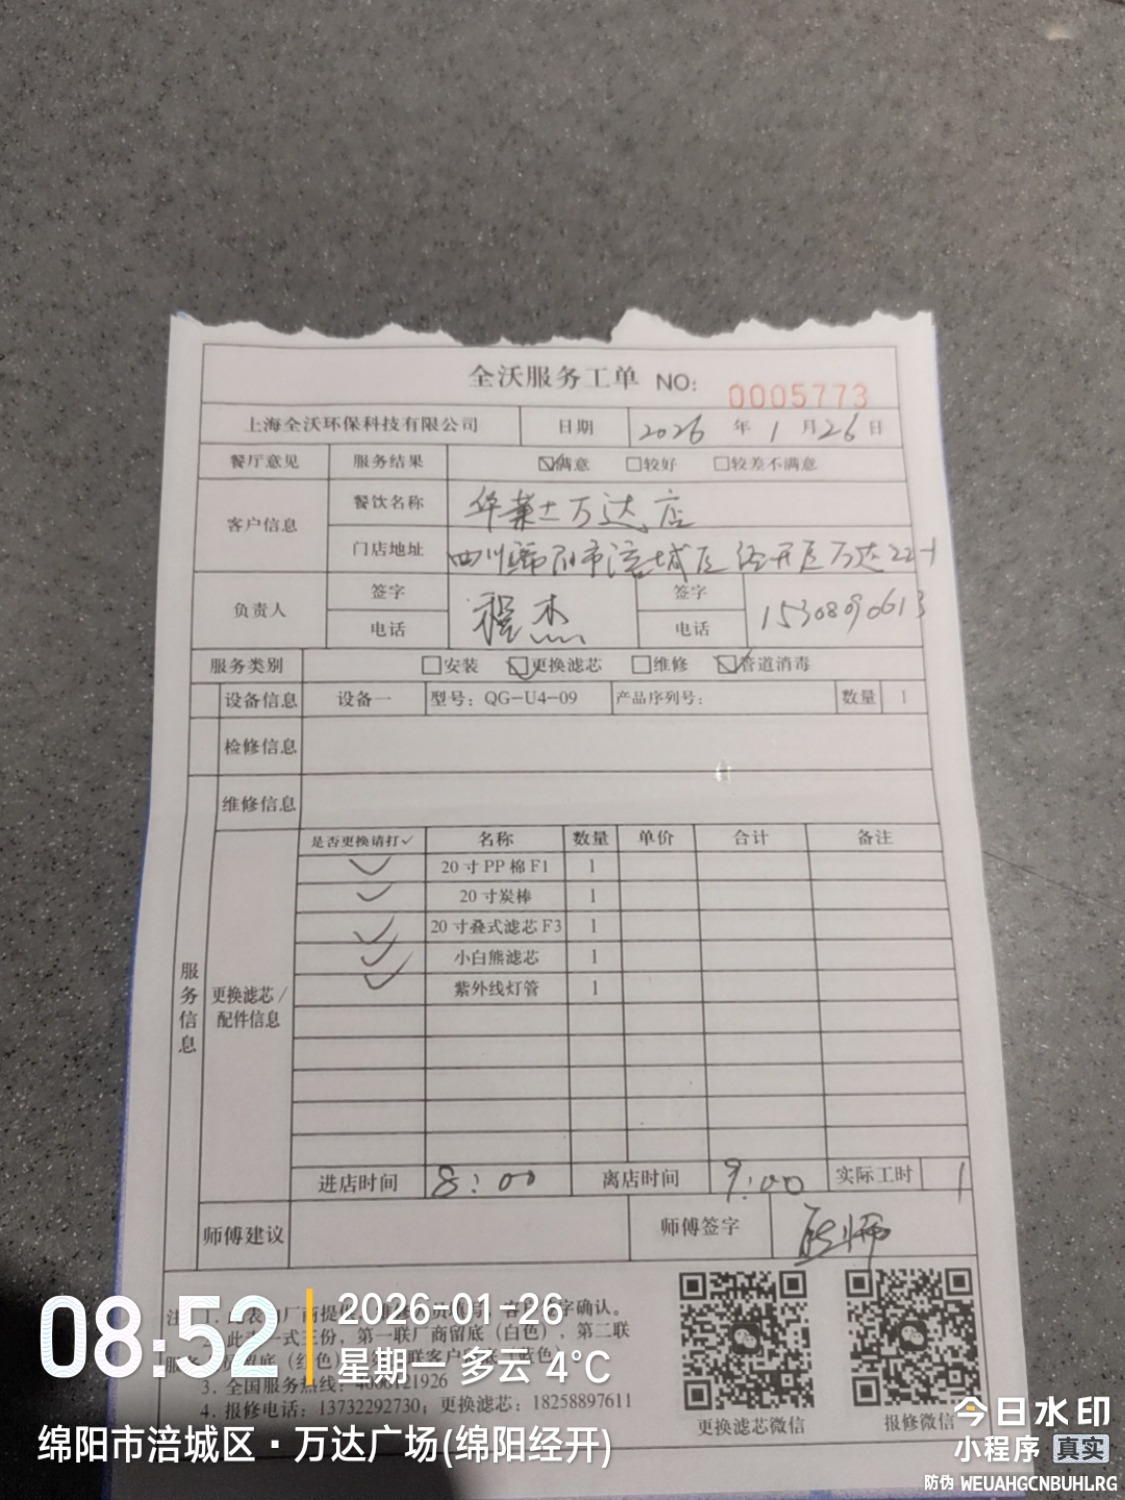 全沃服务工单 NO: 0005773
上海全沃环保科技有限公司 日期 2026 年 1 月 26 日
餐厅意见 服务结果 ☑满意 □较好 □较差不满意
客户信息 餐饮名称 华莱士万达店
门店地址 四川绵阳市涪城区经开区万达22-1
负责人 签字 程杰 签字
电话 电话 15308090613
服务类别 □安装 ☑更换滤芯 □维修 ☑管道消毒
设备信息 设备一 型号：QG-U4-09 产品序列号： 数量 1
检修信息
维修信息
服务信息
更换滤芯/配件信息
是否更换请打✓ 名称 数量 单价 合计 备注
✓ 20寸PP棉F1 1
✓ 20寸炭棒 1
✓ 20寸叠式滤芯F3 1
✓ 小白熊滤芯 1
✓ 紫外线灯管 1
进店时间 8:00 离店时间 9:00 实际工时 1
师傅建议 师傅签字
客户签字确认。
一式三份，第一联厂商留底（白色），第二联
3. 全国服务热线：4008121926
4. 报修电话：13732292730；更换滤芯：18258897611
更换滤芯微信 报修微信
08:52 2026-01-26
星期一 多云 4°C
绵阳市涪城区·万达广场(绵阳经开)
今日水印
小程序 真实
防伪 WEUAHGCNBUHLRG